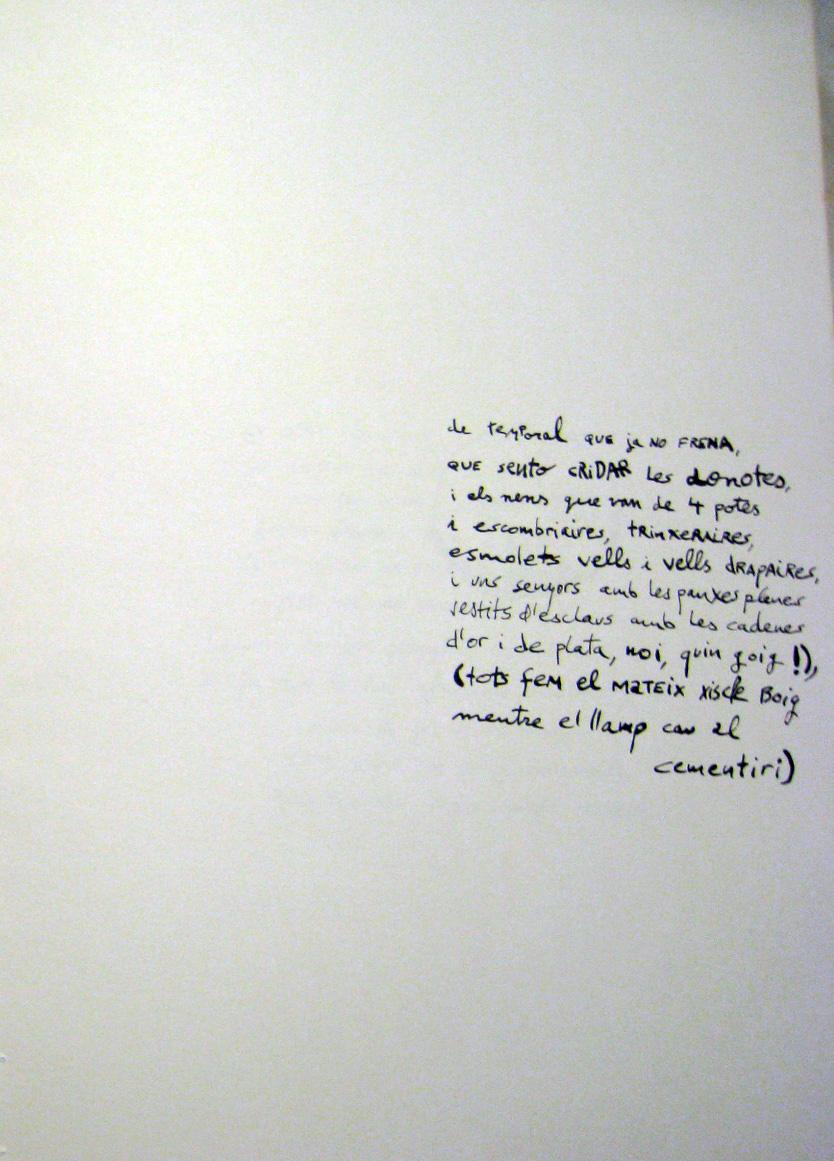 de temporal que ja no FRENA,
que sento CRiDAR les donotes,
i els nens que van de 4 potes
i escombriaires, trinxeraires,
esmolets vells i vells drapaires,
i uns senyors amb les panxes plenes
vestits d'esclaus amb les cadenes
d'or i de plata, noi, quin goig!),
(tots fem el mateix xiscle Boig
mentre el llamp cau al
cementiri)